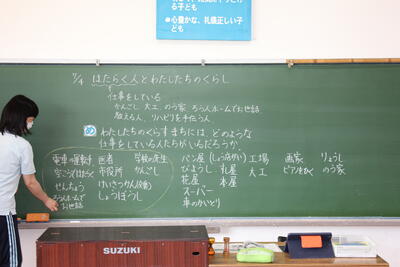 る子ども
●心豊かな、礼儀正しい子ども
7/4 はたらく人とわたしたちのくらし
仕事をしている
かんごし 大工 のう家 ろう人ホームでお世話
教える人、リハビリを手伝う人
め わたしたちのくらすまちには、どのような
仕事をしている人たちがいるだろうか。
電車の運転手 医者 学校の先生
市役所 かんごし
せんちょう けいさつかん
ろう人ホームでお世話 しょうぼうし
パン屋(しょう店がい) 工場 画家 りょうし
びようし 丸屋 大工 ピアノをひく のう家
花屋 本屋
スーパー
車のかいとり
SUZUKI